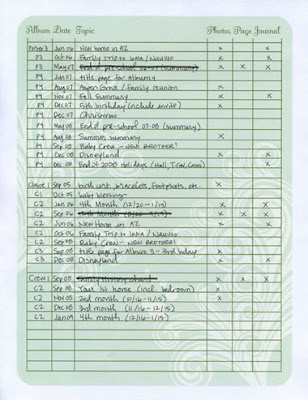 Album Date Topic Photos Page Journal
Jan 06 New home in AZ x x
P3 Oct 06 Family Trip to x x
P3 May 07 End of pre-school 06-07 (summary) x x x
P4 Jun 07 title page for Album 4
P4 Aug 07 Aspen Grove / Family reunion x
P4 Nov 07 Fall Summary x x
P4 Dec 07 5th birthday (include invite) x
P4 Dec 07 Christmas
P4 May 08 End of pre-school 07-08 (summary)
P4 Aug 08 Summer summary x
P4 Sep 08 Baby Crew - NEW BROTHER! x
P4 Dec 08 Disneyland x x
P4 Dec 08 End of 2008 Holidays x
Sep 05 birth cert, bracelets, footprints, etc. x
C1 Oct 05 baby blessing
C2 Jan 06 4th Month (12/20-1/19) x x x
C2 x x x
C2 Jun 06 New Home in AZ x x
C2 Oct 06 Family Trip to
C2 Sep 08 Baby Crew - NEW BROTHER!
C3 Sep 08 title page for Album 3 - 3rd b'day x
C3 Dec 08 Disneyland x x
Sep 08 x x x
C2 Sep 08 Your 1st home (incl. bedroom) x x
C2 Nov 08 2nd month (10/16-11/15) x
C2 Dec 08 3rd month (11/16-12/15)
C2 Jan 09 4th month (12/16-1/15)